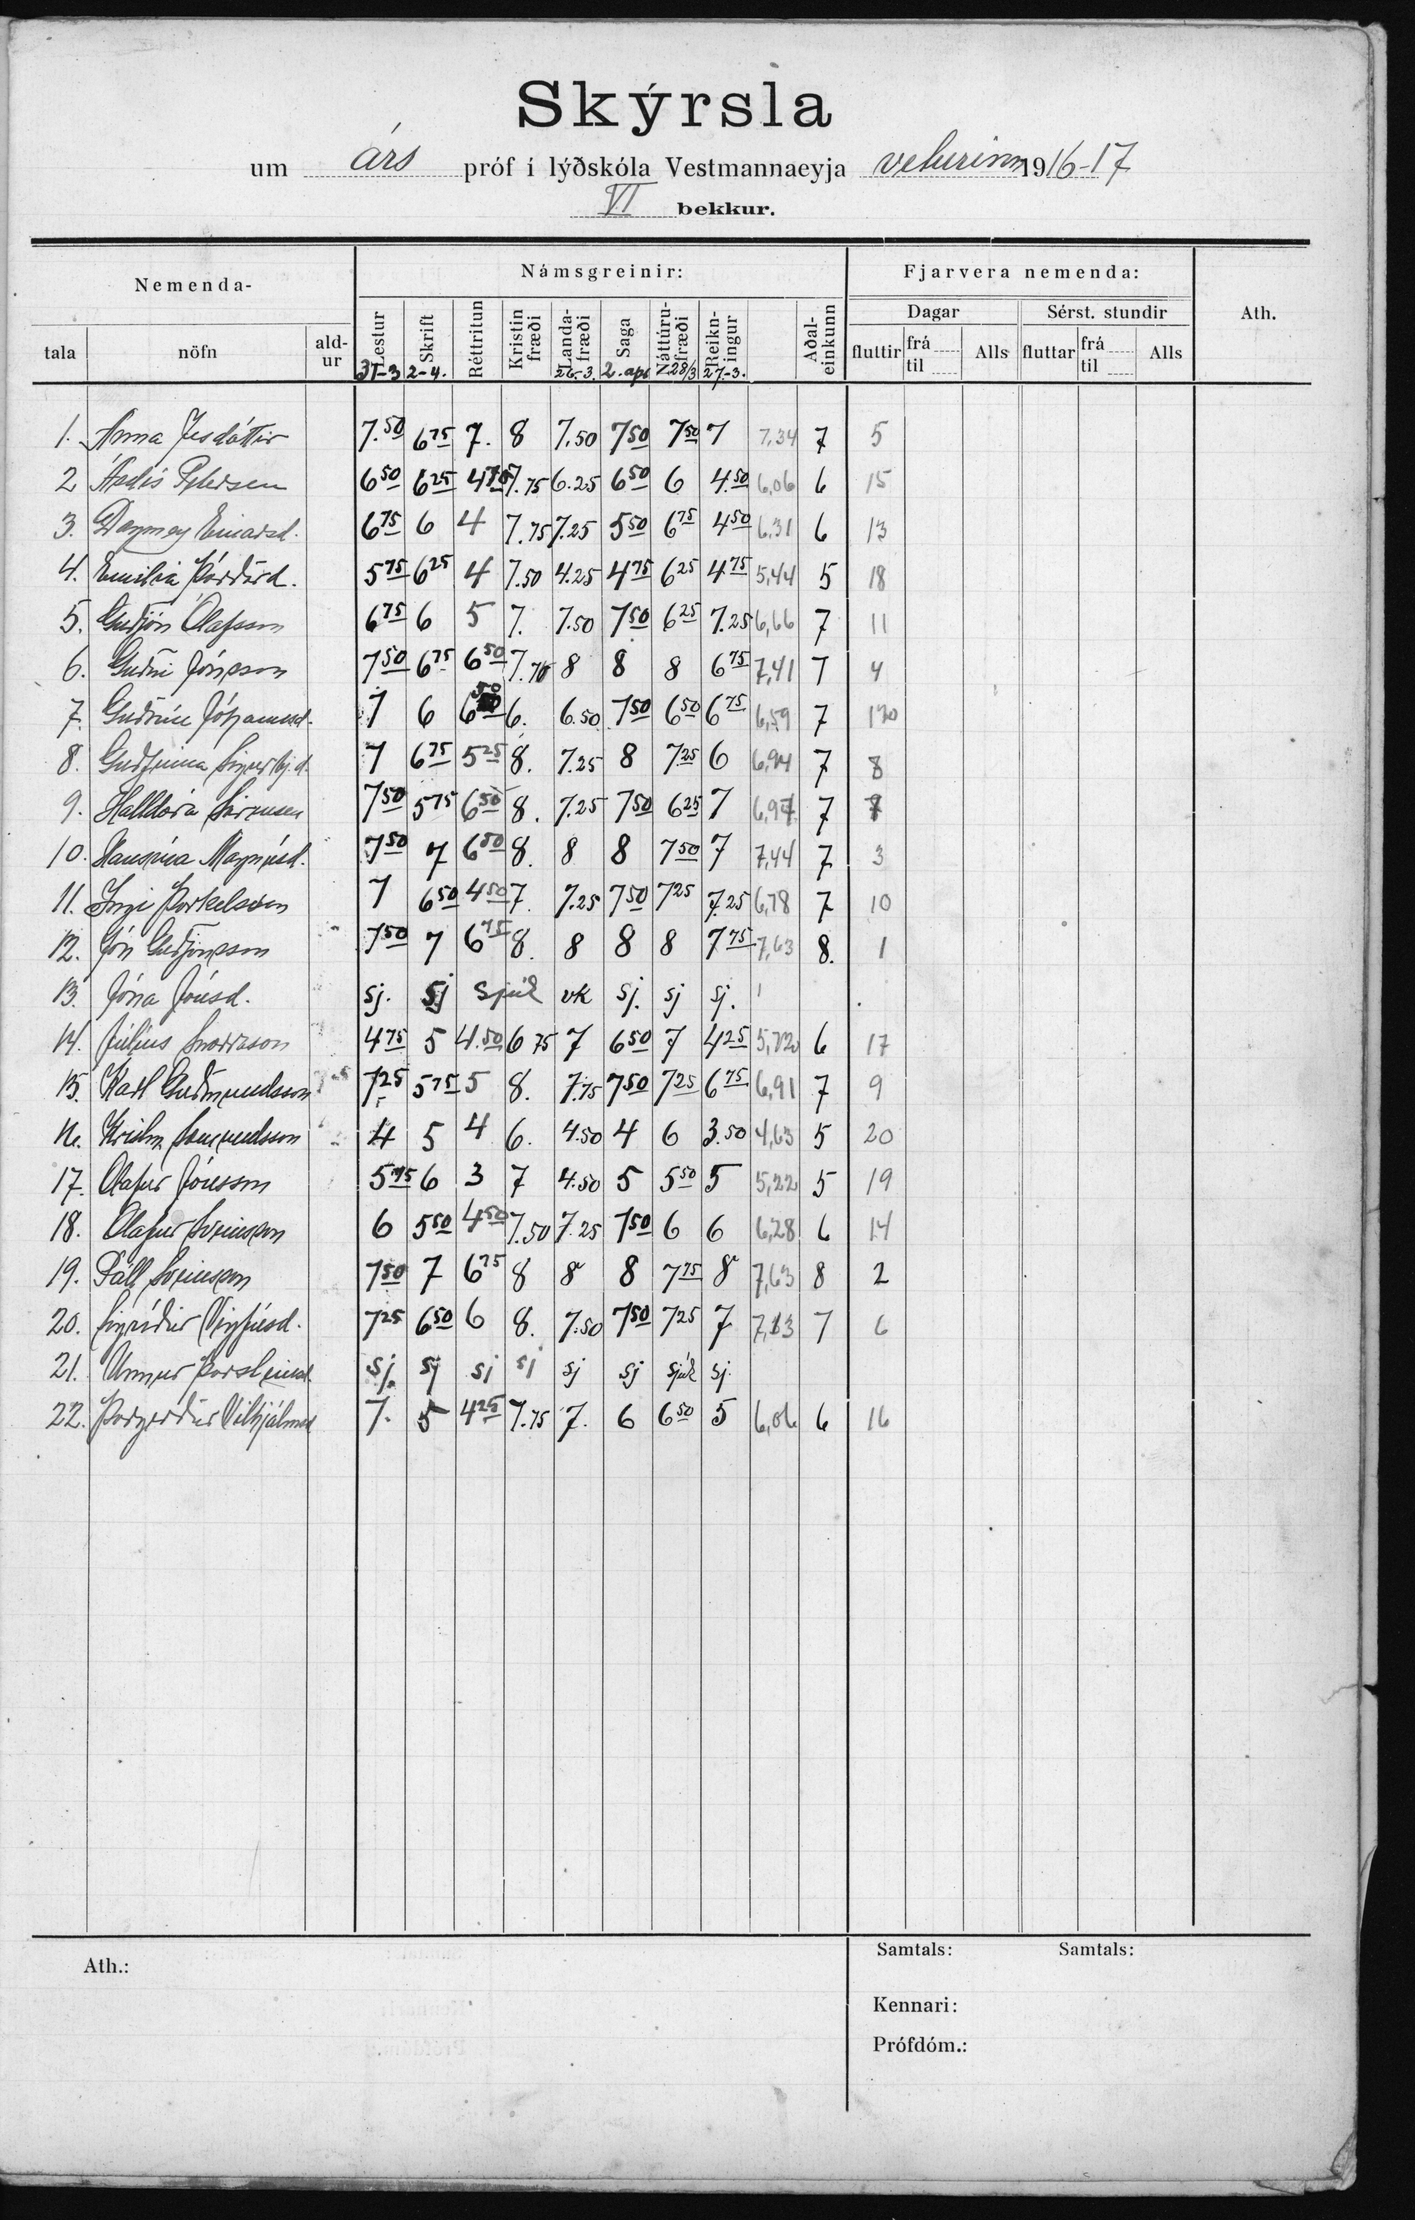 Skýrsla
um árs próf í lýðskóla Vestmannaeyja veturinn 1916-17
VI bekkur.
Nemenda- Námsgreinir: Fjarvera nemenda: Ath.
Dagar Sérst. stundir
tala nöfn ald-ur Lestur Skrift Réttritun Kristin fræði Landa-fræði Saga Náttúru-fræði Reikn-ingur Aðal-einkunn fluttir frá til Alls fluttar frá til Alls
31-3 2-4. 26-3. 2. apr 28/3 27-3.
1. Anna Jesdóttir 7.50 675 7. 8 7.50 750 750 7 7,34 7 5
2 Ásdís Petersen 650 625 4 7.75 6.25 650 6 4.50 6,06 6 15
3. Dagmey Einarsd. 675 6 4 7.75 7.25 550 675 450 6,31 6 13
4. Emilía Þórðard. 575 625 4 7.50 4.25 475 625 475 5,44 5 18
5. Guðjón Ólafsson 675 6 5 7. 7.50 750 625 7.25 6,66 7 11
6. Guðni Jónsson 750 675 650 7.75 8 8 8 675 7,41 7 4
7. Guðrún Jóhannesd. 7 6 650 6. 6.50 750 650 675 6,59 7 120
8. Guðfinna Sigurbj.d. 7 675 525 8. 7.25 8 725 6 6,94 7 8
9. Halldóra Sörensen 750 575 650 8. 7.25 750 625 7 6,97 7 7
10. Magnúsd. 750 7 650 8. 8 8 750 7 7,44 7 3
11. Ingi Þorkelsson 7 650 450 7 7.25 750 725 7.25 6,78 7 10
12. Jón Guðjónsson 750 7 675 8. 8 8 8 775 7,63 8. 1
13. Jóna Jónsd. sj. sj sjúk vk sj. sj sj.
14. Júlíus Snorrason 475 5 4.50 6 75 7 650 7 425 5,72 6 17
15. Karl Guðmundsson 725 575 5 8. 7.75 750 725 675 6,91 7 9
16. Kristm Sæmundsson 4 5 4 6. 4.50 4 6 3.50 4,63 5 20
17. Ólafur Jónsson 575 6 3 7 4.50 5 550 5 5,22 5 19
18. Ólafur Sveinsson 6 550 450 7.50 7.25 750 6 6 6,28 6 14
19. Páll Sveinsson 750 7 675 8 8 8 775 8 7,63 8 2
20. Sigríður Vigfúsd. 725 650 6 8. 7.50 750 725 7 7,13 7 6
21. Unnur Þorsteinsd. sj. sj sj sj sj sj sjúk sj.
22. Þorgerður Vilhjálmsd 7. 5 425 7.75 7. 6 650 5 6,06 6 16
Ath.:
Samtals: Samtals:
Kennari:
Prófdóm.: